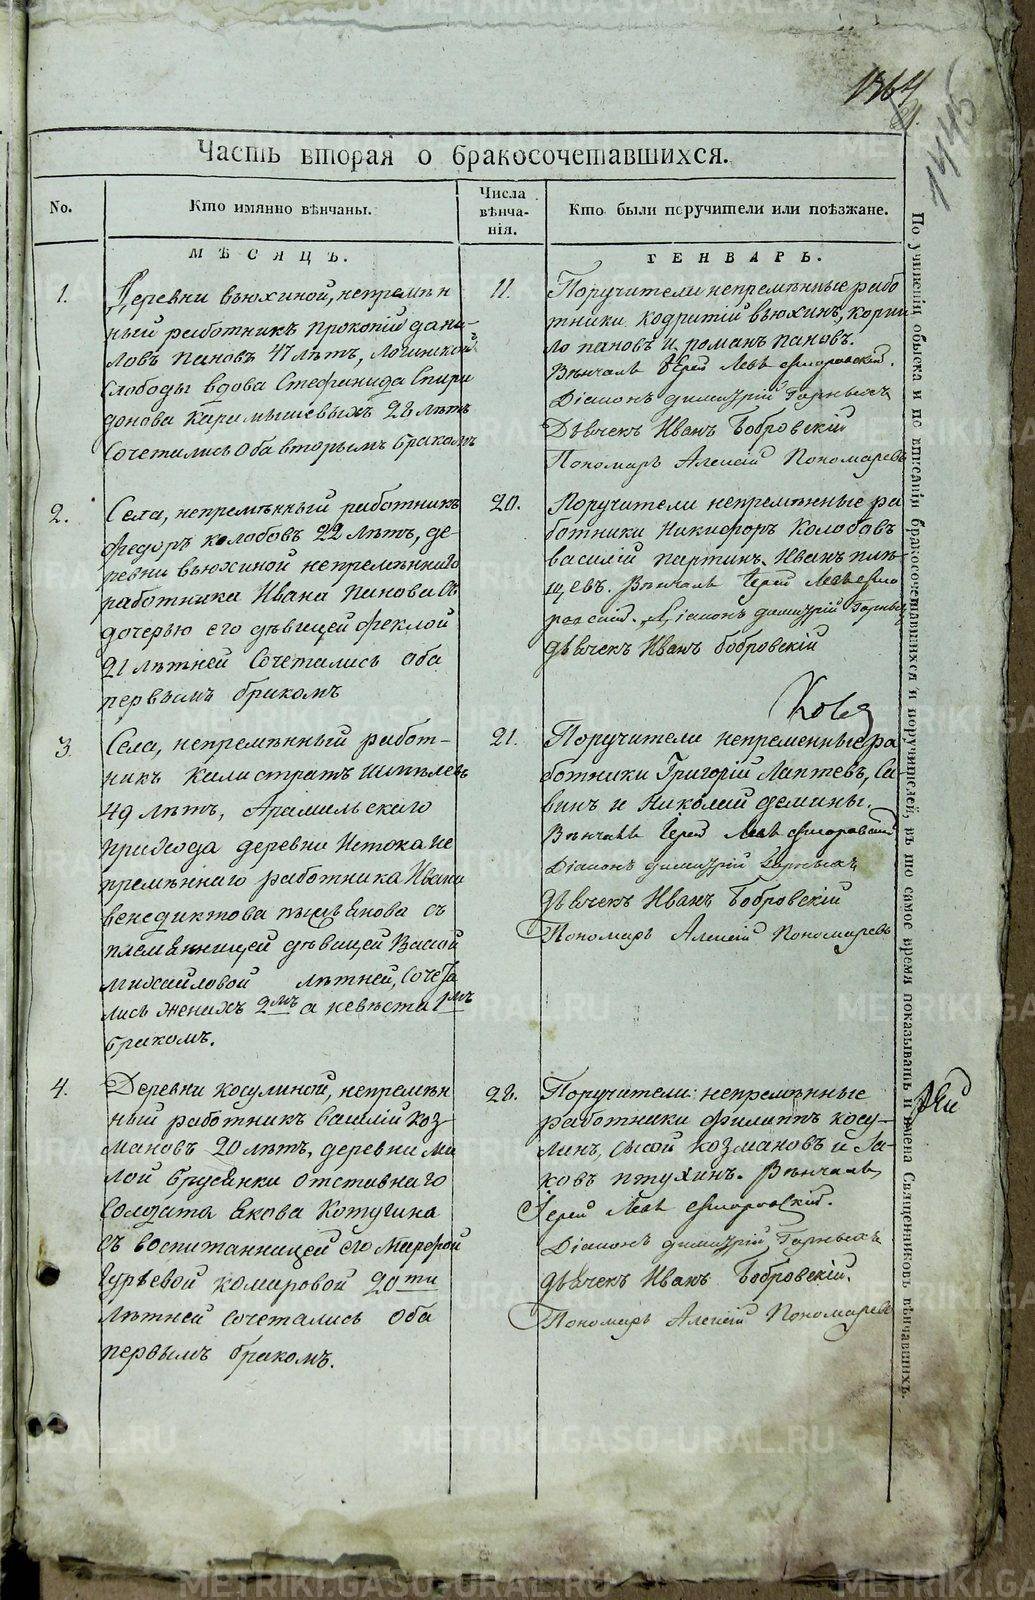 1764
1445
Часть вторая о бракосочетавшихся.
No.
Кто имянно вѣнчаны.
Числа вѣнча-нія.
Кто были поручители или поѣзжане.
МѢСЯЦЪ.
ГЕНВАРЬ.
1.
Деревни вьюхиной, непремѣн
ный работникъ прокопій дани-
ловъ пановъ 47 лѣтъ, Логинской
слободы вдова Стефанида Спири
донова Карамышевыхъ 28 лѣтъ
Сочетались оба вторымъ бракомъ
11.
Поручители непремѣнные рабо
тники кодратій вьюхинъ, корни
ло пановъ и романъ пановъ.
Вѣнчалъ Іерей Левъ
Діаконъ димитрій Горныхъ
Дьячекъ Иванъ Бобровскій
Пономарь Алексій Пономаревъ
2.
Села, непремѣнный работникъ
Федоръ колобовъ 22 лѣтъ, де-
ревни вьюхиной непремѣннаго
работника Ивана Панова съ
дочерью его дѣвицей феклой
21 лѣтней Сочетались оба
первымъ бракомъ
20.
Поручители непремѣнные ра
ботники Никифоръ Колобовъ
василій партинъ. Иванъ плѣ-
щевъ. Вѣнчалъ Іерей Левъ
Діаконъ димитрій Горныхъ
дьячекъ Иванъ Бобровскій
3
Села, непремѣнный работ-
никъ Калистратъ Шмѣлевъ
49 лѣтъ, Арамильскаго
прихода деревни Истока не
премѣннаго работника Ивана
венедиктова пышьянова съ
племянницей дѣвицей Васой
михайловой лѣтней, Сочета
лись женихъ 2мъ а невѣста 1мъ
бракомъ.
21.
Поручители непременные ра
ботники Григорій Лаптевъ, Са-
винъ и Николай демины.
Вѣнчалъ Іерей Левъ
Діаконъ димитрій Горныхъ
дьячекъ Иванъ Бобровскій
Пономарь Алексій Пономаревъ
4.
Деревни косулиной, непремѣн
ный работникъ василій коз-
мановъ 20 лѣтъ, деревни ма
лой брусянки отставнаго
солдата Якова Котугина
съ воспитанницей его Марфой
Гурьевой комаровой 20ти
лѣтней сочетались оба
первымъ бракомъ.
28.
Поручители: непремѣнные
работники филиппъ косу-
линъ, сысой козмановъ и Я-
ковъ птухинъ. Вѣнчалъ
Іерей Левъ
Діаконъ димитрій Горныхъ
дьячекъ Иванъ Бобровскій.
Пономарь Алексій Пономаревъ
По учиненіи обыска и по вписаніи бракосочетавшихся и поручителей, въ то самое время показывать и имена Священниковъ вѣнчавшихъ.
METRIKI.GASO-URAL.RU